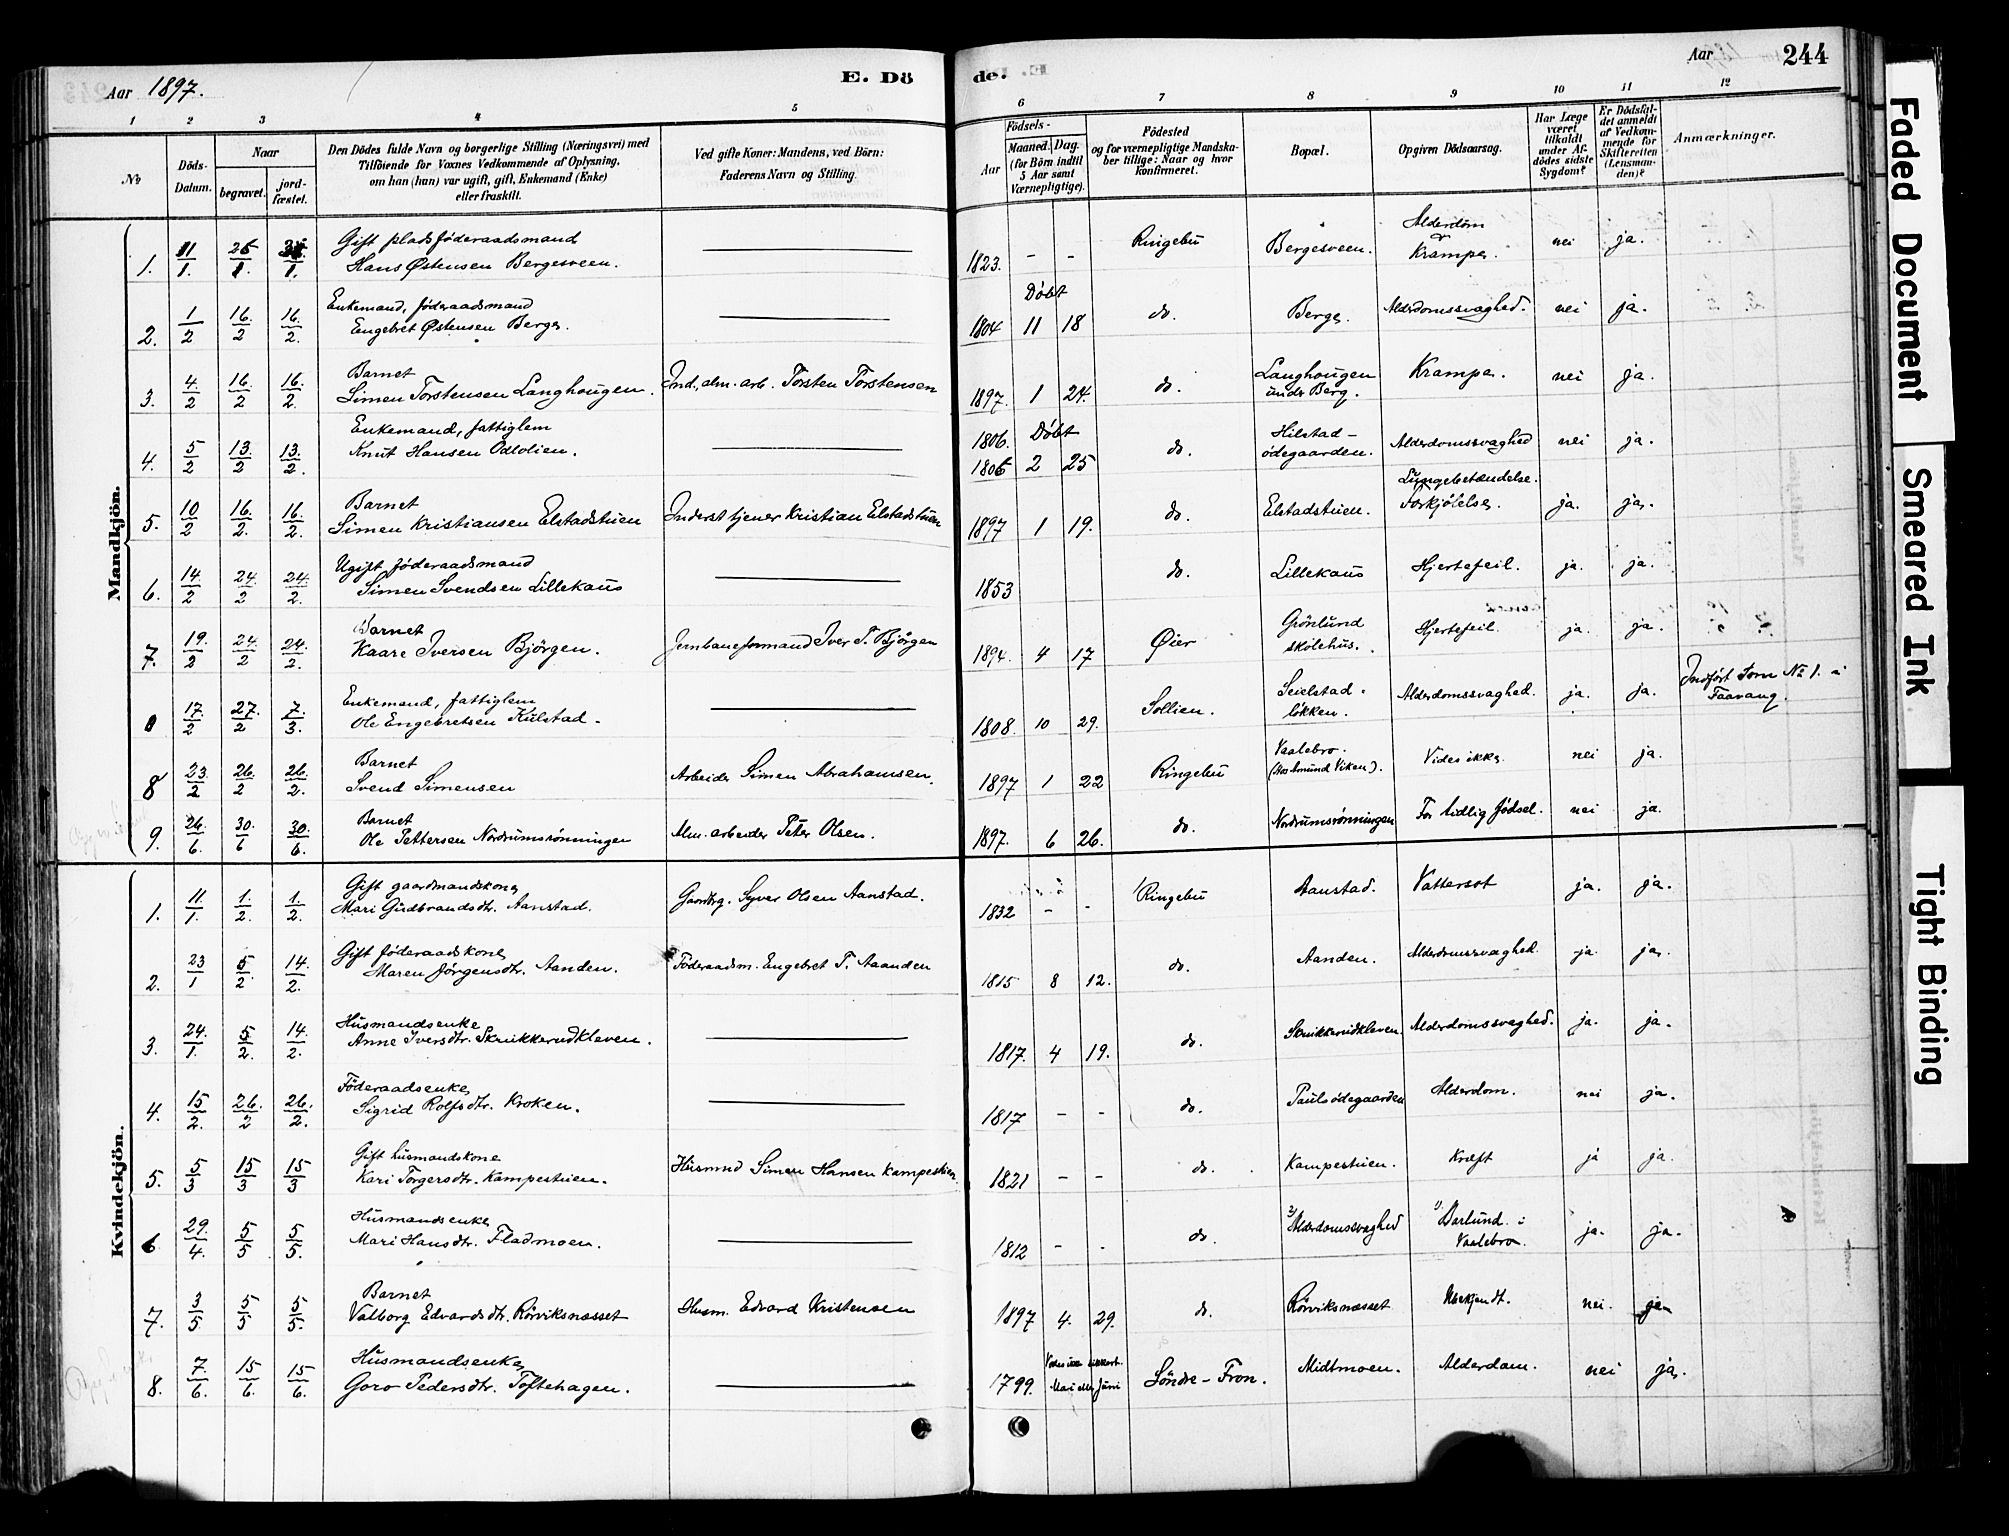 Aar 1897.
E. Döde.
Aar 244
1 2 3 4 5 6 7 8 9 10 11 12
№
Döds-Datum.
Naar
begravet.
jord-fæstet.
Den Dödes fulde Navn og borgerlige Stilling (Næringsvei) med
Tilföiende for Voxnes Vedkommende af Oplysning,
om han (hun) var ugift, gift, Enkemand (Enke)
eller fraskilt.
Ved gifte Koner: Mandens, ved Börn:
Faderens Navn og Stilling.
Födsels-
Aar
Maaned. Dag.
(for Börn indtil
5 Aar samt
Værnepligtige).
Födested
og for værnepligtige Mandska-
ber tillige: Naar og hvor
konfirmeret.
Bopæl.
Opgiven Dödsaarsag.
Har Læge
været
tilkaldt
under Af-
dödes sidste
Sygdom?
Er Dödsfal-
det anmeldt
af Vedkom-
mende for
Skifteretten
(Lensman-
den)?
Anmærkninger.
Mandkjön.
1. 11/1. 25/1. 1. Gift pladsföderaadsmand
Hans Østensen Bergesveen. 1823. - - Ringebu Bergesveen. Alderdom & Krampe. nei ja.
2. 1/2 16./2 16./2. Enkemand, föderaadsmand
Engebret Østensen Berge. 1804 Döbt 11 18 do. Berge. Alderdomssvaghed. nei ja.
3. 4./2 16./2 16./2. Barnet
Simen Torstensen Langhougen. Ind., alm. arb. Torsten Torstensen 1897. 1 24. do. Langhougen under Berg. Krampe. nei ja.
4. 5/2 13./2 13./2. Enkemand, fattiglem
Knut Hansen Odlolien. 1806. Döbt
1806 2 25 do. Hilstad-
ödegaarden. Alderdomssvaghed nei ja.
5. 10/2 16./2. 16./2. Barnet
Simen Kristiansen Elstadstuen Inderst tjener Kristian Elstadstuen 1897 1 19. do. Elstadstuen. Lungebetændelse.
Forkjölelse. ja. ja.
6. 14./2 24./2 24./2. Ugift föderaadsmand
Simen Svendsen Lillekaus 1853 do. Lillekaus Hjertefeil. ja. ja.
7. 19./2 24./2 24./2. Barnet
Kaare Iversen Björgen. Jernbaneformand Iver T. Björgen 1894. 4 17 Øier Grönlund
skolehus. Hjertefeil. ja. ja.
0 17./2 27./2 7/3. Enkemand, fattiglem
Ole Engebretsen Kulstad. 1808. 10 29. Sollien. Seielstad-
løkken. Alderdomssvaghed. ja. ja. Indfört som № 1. i
Faavang.
8 23./2 26./2 26./2. Barnet
Svend Simensen Arbeider Simen Abrahamsen. 1897 1 22 Ringebu Vaalebro.
(hos Amund Viken). Vides ikke. nei ja.
9. 26./6. 30./6 30./6. Barnet
Ole Pettersen Nordrumsrönningen Alm. arbeider Peter Olsen. 1897. 6 26. do. Nordrumsrönningen For tidlig födsel. nei ja.
Kvindekjön.
1. 11/1. 1./2. 1./2. Gift gaardmandskone
Mari Gudbrandsdtr. Aanstad. Gaardbrg. Syver Olsen Aanstad. 1832 - - Ringebu Aanstad. Vattersot ja. ja.
2. 23/1 5/2. 14./2. Gift föderaadskone
Maren Jörgensdtr. Aanden. Föderaadsm. Engebret T. Aaanden 1815 8 12. do. Aanden. Alderdomssvaghed. ja. ja.
3. 24./1. 5/2. 14./2. Husmandsenke
Anne Iversdtr. Skrukkerudkleven. 1817. 4 19. do. Skrukkerudkleven. Alderdomssvaghed. ja. ja.
4. 15/2. 26./2 26./2. Föderaadsenke
Sigrid Rolfsdtr. Kroken. 1817 - - do. Paulsödegaarden Alderdom. nei ja.
5. 5/3 15/3 15/3 Gift husmandskone
Kari Torgersdtr. Kampestuen. Husmnd Simen Hansen Kampestuen. 1821 - - do. Kampestuen. Kræft ja ja.
6 29./4. 5/5 5/5. Husmandsenke
Mari Hansdtr. Fladmoen. 1812 - - do. 2) Alderdomssvaghed 1) Barlund i
Vaalebro. ja. ja.
7. 3/5. 5/5 5/5. Barnet
Valborg Edvardsdtr. Rörviksnæsset Husm. Edvard Kristensen 1897 4. 29. do. Rörviksnæsset Ubekjendt. nei. ja
8. 7./6. 15/6. 15/6. Husmandsenke
Goro Pedersdtr. Toftehagen. 1799. Vides ikke sikkert.
Mai eller Juni Söndre-Fron. Midtmoen. Alderdom. nei ja.
Faded Document
Smeared Ink
Tight Binding